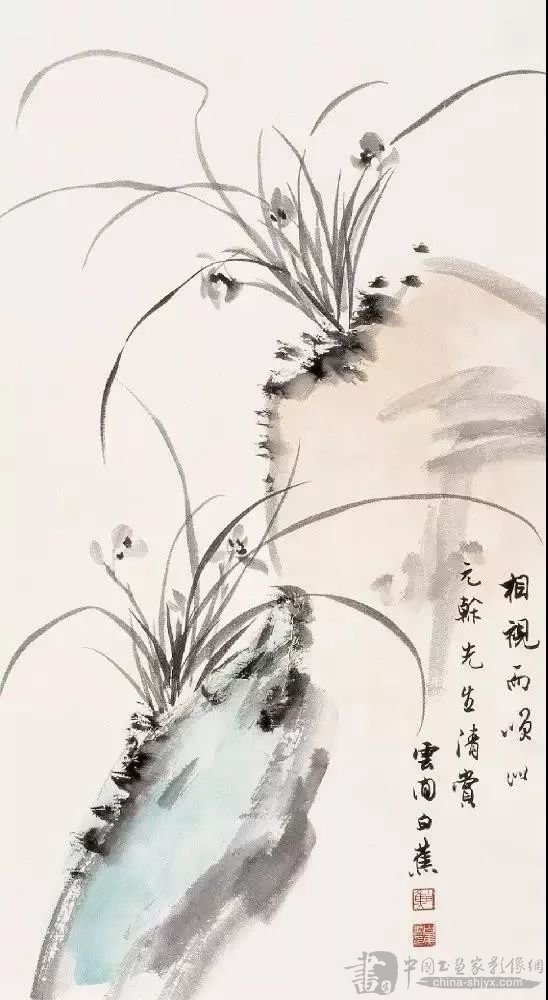 相視而咲以
元幹先生清賞
雲間白蕉
書
中国书画家影像網
china-shjyx.com